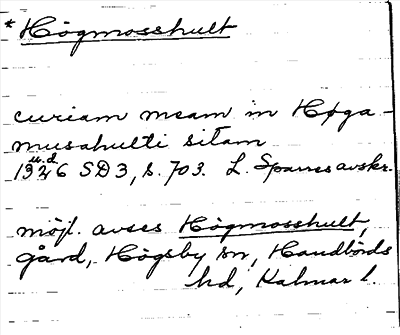 * Högmosshult
curiam meam in Høga-
musahulti sitam
u.d.
1326 SD 3, s. 703. L. Sparres avskr.
möjl. avses Högmosshult,
gård, Högsby sn, Handbörds
hd, Kalmar l.